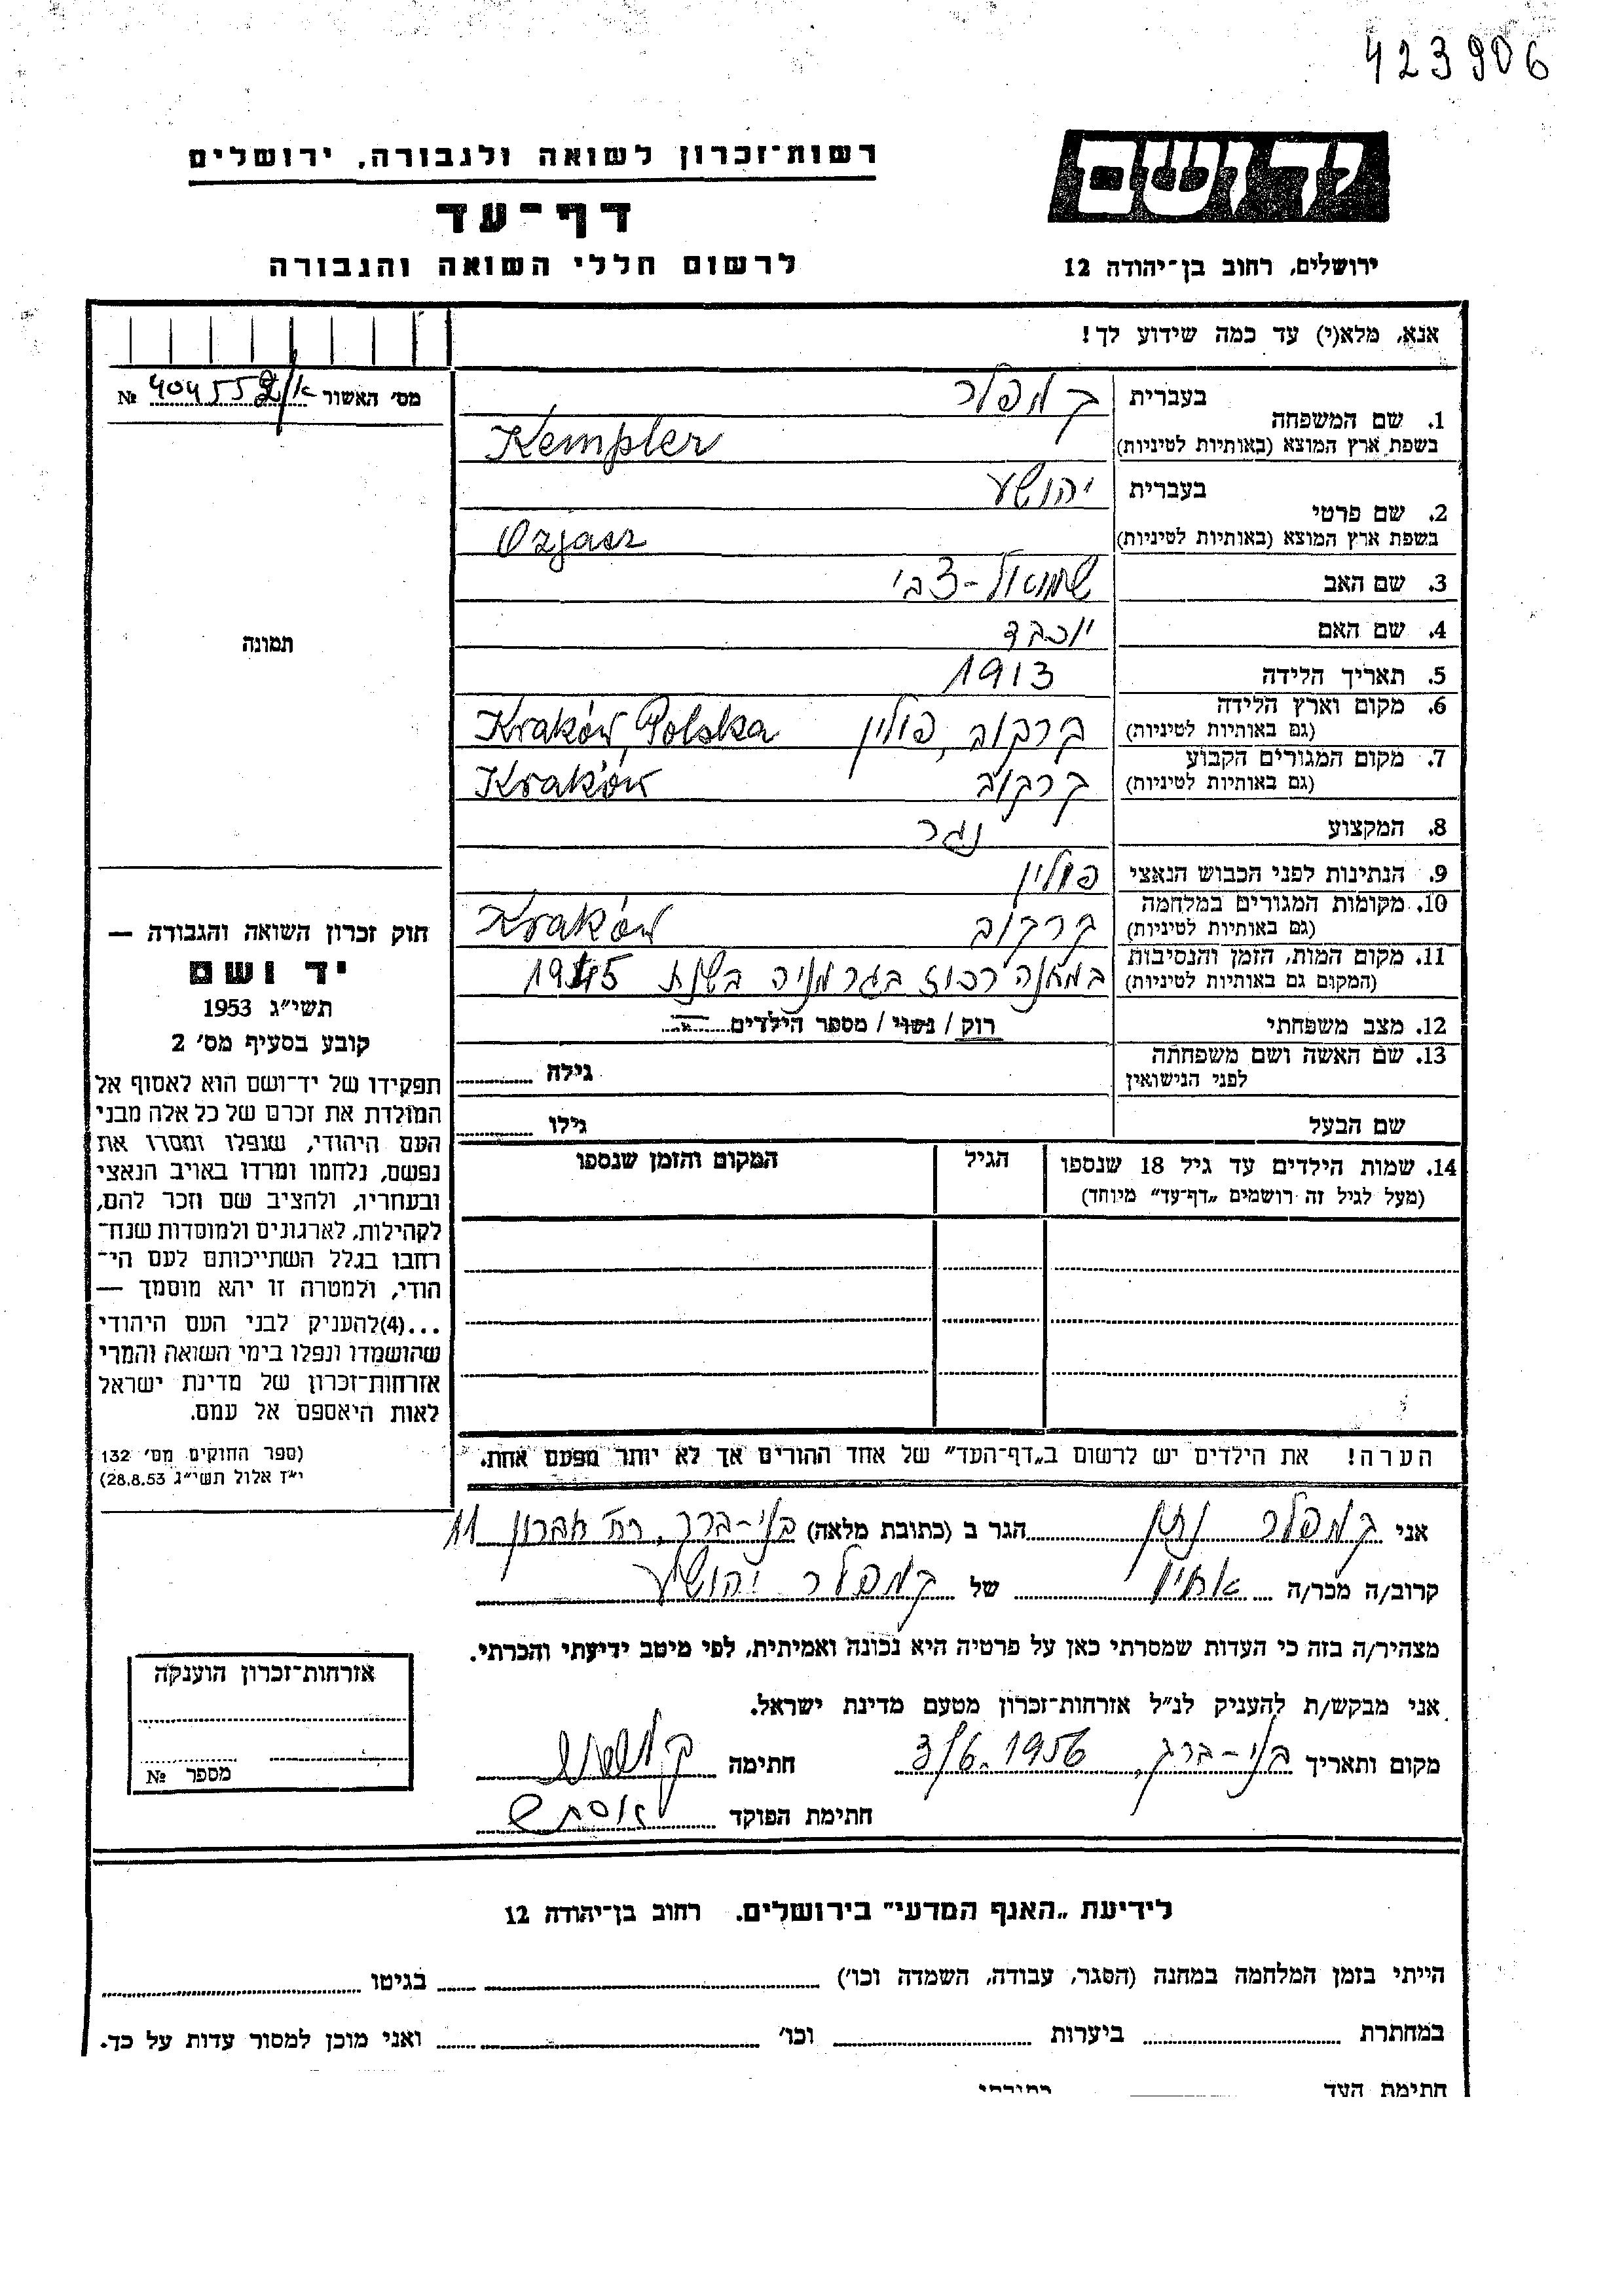 423906
ידושם
רשות־זכרון לשואה ולגבורה, ירושלים
דף־עד
לרשום חללי השואה והגבורה
ירושלים, רחוב בן־יהודה 12
אנא, מלא(י) עד כמה שידוע לך!
מס׳ האשור 404552/א №
1. שם המשפחה
בעברית קמפלר
בשפת ארץ המוצא (באותיות לטיניות) Kempler
2. שם פרטי
בעברית יהושע
בשפת ארץ המוצא (באותיות לטיניות) Ozjasz
3. שם האב שמואל-צבי
4. שם האם יוכבד
5. תאריך הלידה 1913
6. מקום וארץ הלידה (גם באותיות לטיניות) קרקוב, פולין Kraków, Polska
7. מקום המגורים הקבוע (גם באותיות לטיניות) קרקוב Kraków
8. המקצוע נגר
9. הנתינות לפני הכבוש הנאצי פולין
10. מקומות המגורים במלחמה (גם באותיות לטיניות) קרקוב Kraków
11. מקום המות, הזמן והנסיבות (המקום גם באותיות לטיניות) במחנה רכוז בגרמניה בשנת 1945
12. מצב משפחתי רוק / נשוי / מספר הילדים
13. שם האשה ושם משפחתה לפני הנישואין גילה
שם הבעל גילו
14. שמות הילדים עד גיל 18 שנספו
(מעל לגיל זה רושמים „דף־עד" מיוחד)
הגיל
המקום והזמן שנספו
הערה! את הילדים יש לרשום ב„דף־העד" של אחד ההורים אך לא יותר מפעם אחת.
תמונה
חוק זכרון השואה והגבורה —
יד ושם
תשי״ג 1953
קובע בסעיף מס׳ 2
תפקידו של יד־ושם הוא לאסוף אל
המולדת את זכרם של כל אלה מבני
העם היהודי, שנפלו ומסרו את
נפשם, נלחמו ומרדו באויב הנאצי
ובעחריו, ולהציב שם וזכר להם,
לקהילות, לארגונים ולמוסדות שנח־
רחבו בגלל השתייכותם לעם הי־
הודי, ולמטרה זו יהא מוסמך —
...(4)להעניק לבני העם היהודי
שהושמדו ונפלו בימי השואה והמרי
אזרחות־זכרון של מדינת ישראל
לאות היאספם אל עמם.
(ספר החוקים מס׳ 132
י״ז אלול תשי״ג 28.8.53)
אני קמפלר נתן הגר ב (כתובת מלאה) בני-ברק, רח׳ חברון 11
קרוב/ה מכר/ה אחיו של קמפלר יהושע
מצהיר/ה בזה כי העדות שמסרתי כאן על פרטיה היא נכונה ואמיתית, לפי מיטב ידיעתי והכרתי.
אני מבקש/ת להעניק לנ״ל אזרחות־זכרון מטעם מדינת ישראל.
מקום ותאריך בני-ברק, 3/6.1956 חתימה
חתימת הפוקד
אזרחות־זכרון הוענקה
מספר №
לידיעת „האגף המדעי" בירושלים. רחוב בן־יהודה 12
הייתי בזמן המלחמה במחנה (הסגר, עבודה, השמדה וכו׳) בגיטו
במחתרת ביערות וכו׳ ואני מוכן למסור עדות על כך.
חתימת העד